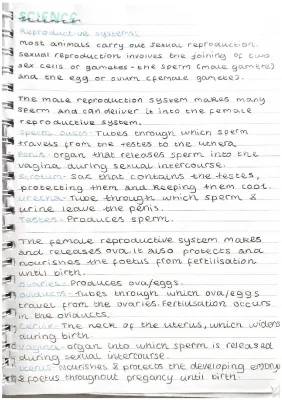 SCIENCE
Reproductive systems
most animals carry out sexual reproduction.
sexual reproduction involves the joining of two
sex cells or gametes - the sperm (male gamete)
and the egg or ovum (female gamete).
The male reproduction system makes many
sperm and can deliver it into the female
reproductive system.
Sperm ducts - Tubes through which sperm
travels from the testes to the
Penis - organ that releases sperm into the
vagina during sexual intercourse.
Scrotum - Sac that contains the testes,
protecting them and keeping them cool.
urethra - Tube through which sperm &
urine leave the penis.
Testes - Produces sperm.
The female reproductive system makes
and releases ova. it also protects and
nourishes the foetus from fertilisation
until birth.
ovaries - Produces ova/eggs.
oviducts - Tubes through which ova/eggs
travel from the ovaries. Fertilisation occurs
in the oviducts.
Cervix - The neck of the uterus, which widens
during birth.
vagina - organ into which sperm is released
during sexual intercourse.
uterus - nourishes & protects the developing embryo
& foetus throughout pregancy until birth.